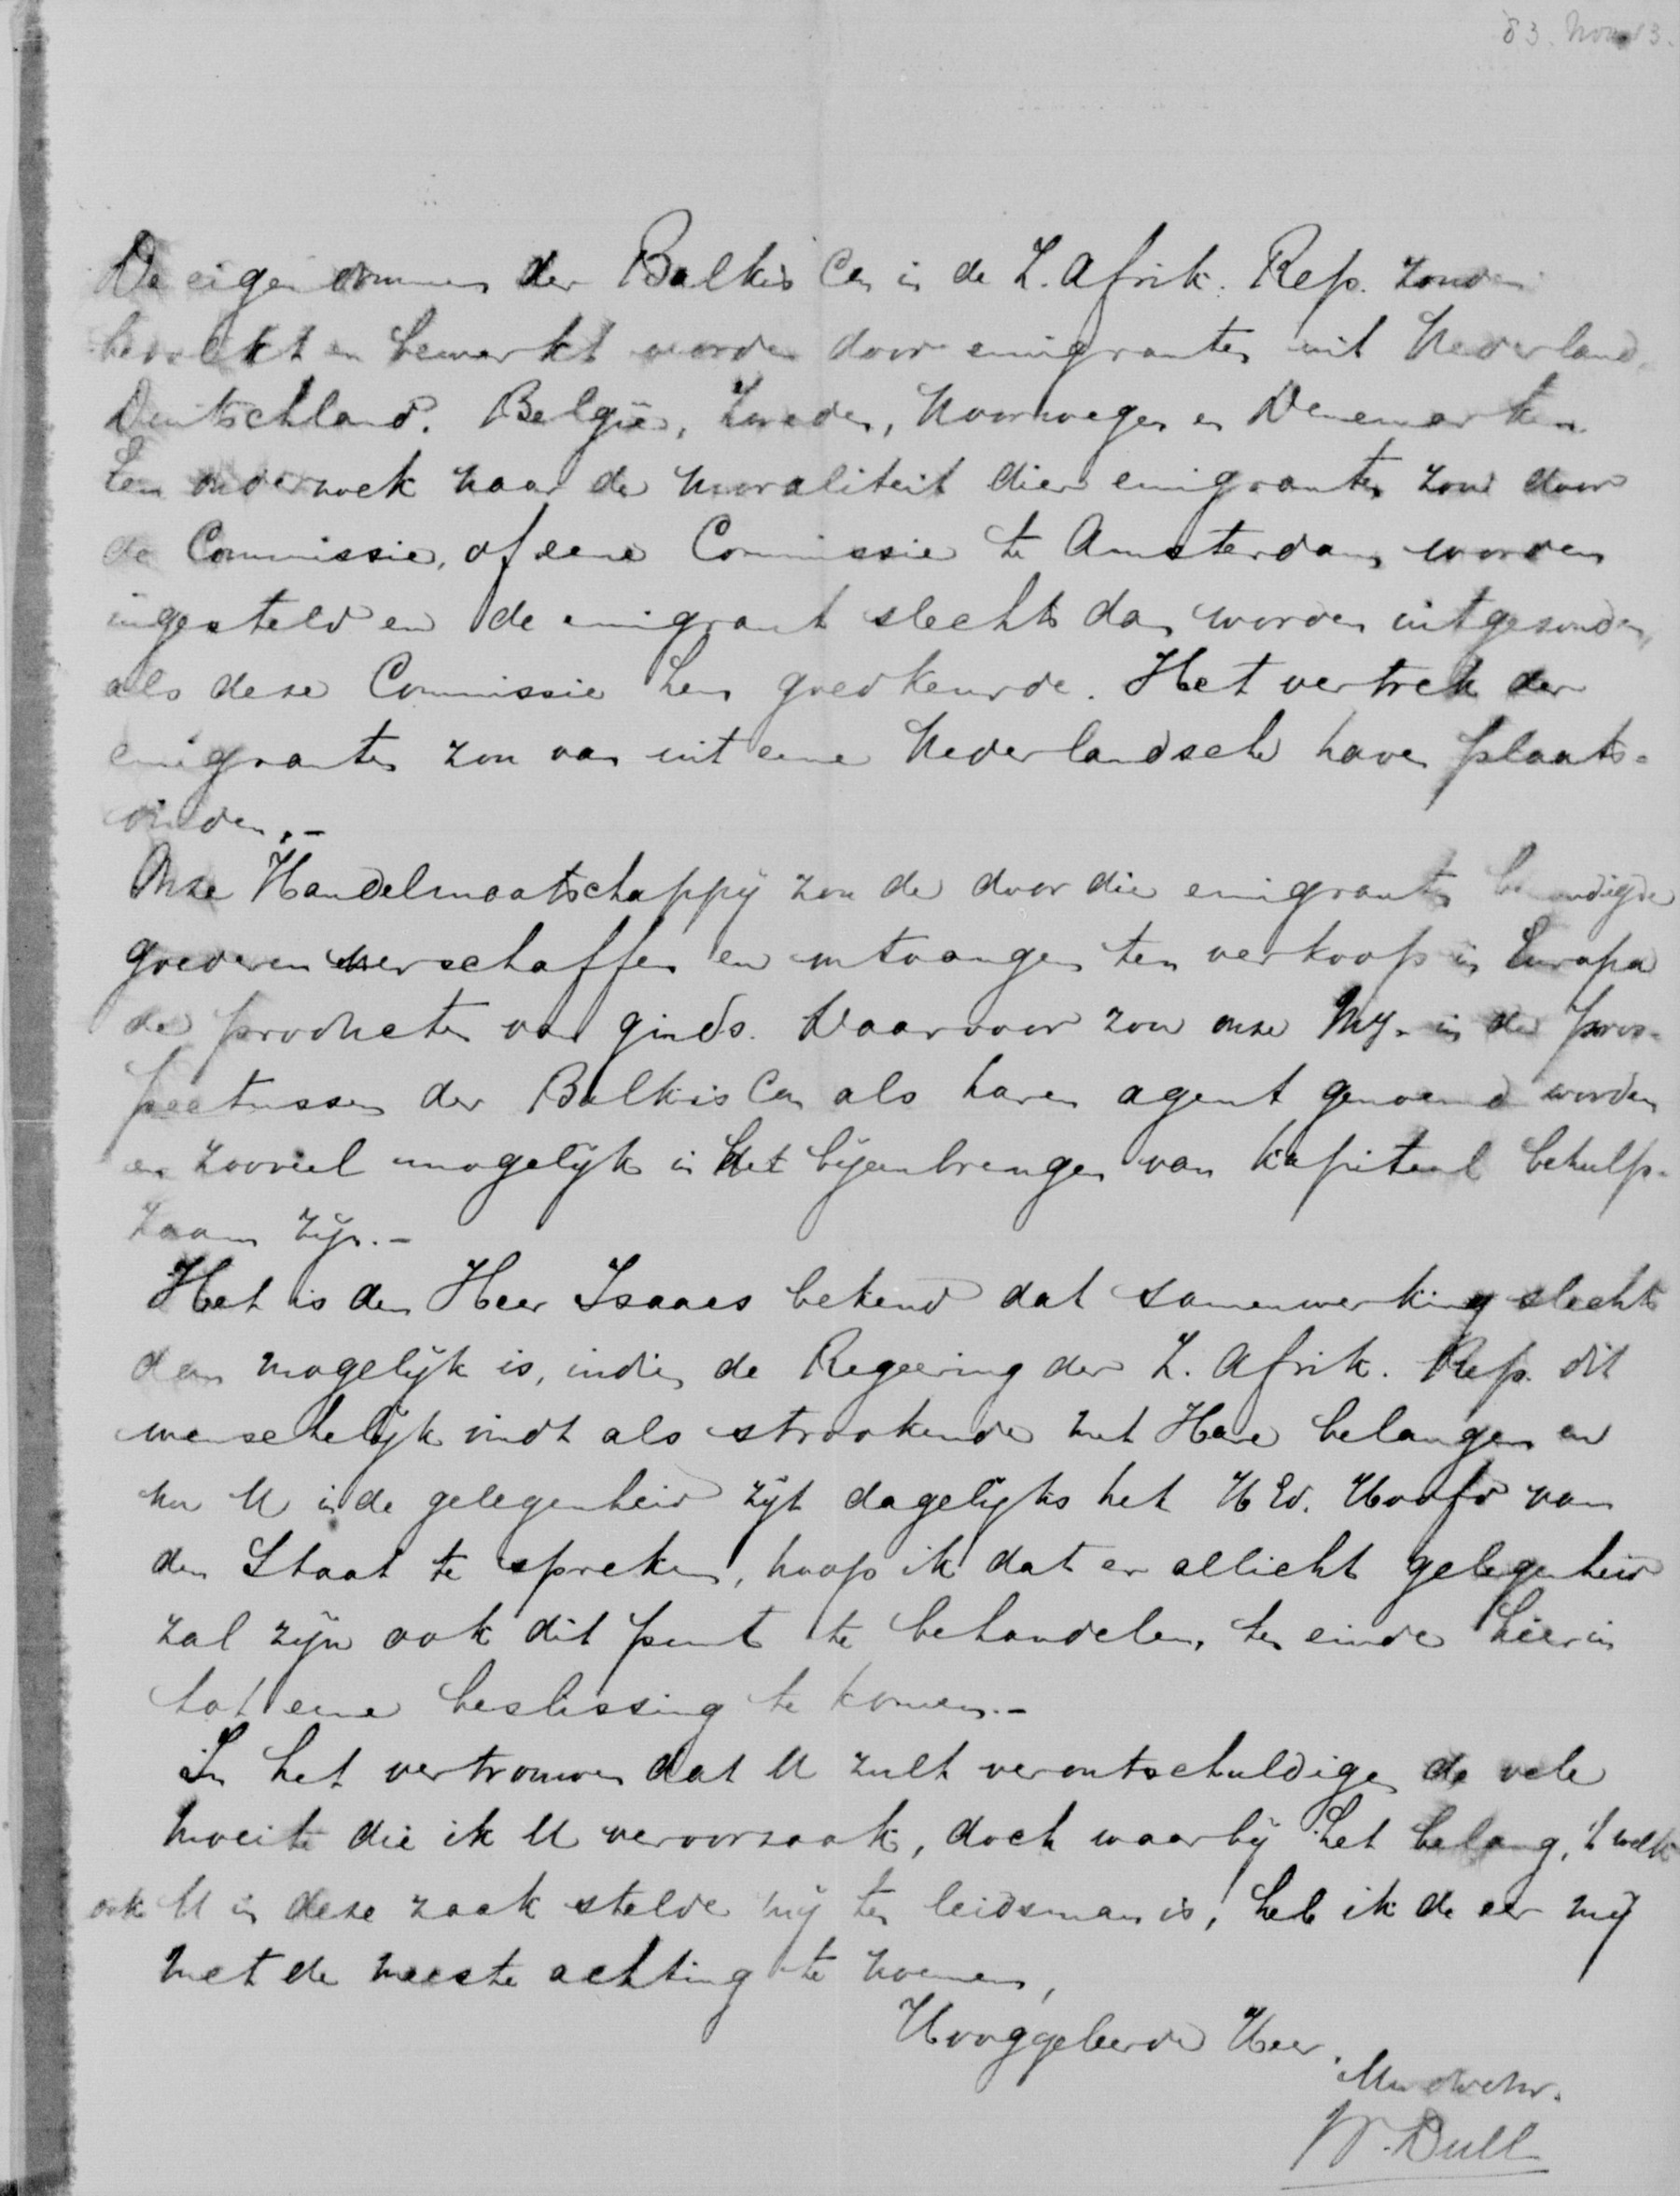 De eigendommen der Balkis Cen in de Z. Afrik. Rep. zouden
bevolkt en bewerkt worden door emigranten uit Nederland,
Deutschland, België, Zweden, Noorwegen en Denemarken.
Een onderzoek naar de moraliteit dier emigranten zou door
de Commissie, of eene Commissie te Amsterdam worden
ingesteld en de emigrant slechts dan worden uitgezonden,
als deze Commissie hen goedkeurde. Het vertrek der
emigranten zou van uit eene Nederlandsche haven plaats-
vinden.-
Onze Handelmaatschappij zou de door die emigranten benoodigde
goederen verschaffen en ontvangen ten verkoop in Europa
de producten van ginds. Daarvoor zou onze Mij. in de pros-
pectussen der Balkis Cen als haren agent genoemd worden
en zooveel mogelijk in het bijeenbrengen van kapitaal behulp-
zaam zijn.-
Het is den Heer Isaacs bekend dat samenwerking slechts
dan mogelijk is, indien de Regeering der Z. Afrik. Rep. dit
wenschelijk vindt als strookende met Hare belangen en
nu U in de gelegenheid zijt dagelijks het HEd. Hoofd van
den Staat te spreken, hoop ik dat er allicht gelegenheid
zal zijn ook dit punt te behandelen, ten einde hierin
tot eene beslissing te komen.-
In het vertrouwen dat U zult verontschuldigen de vele
moeite die ik U veroorzaak, doch waarbij het belang, 't welk
ook U in deze zaak stelde mij ten leidsman is, heb ik de eer mij
met de meeste achting te noemen,
Hooggeleerde Heer,
Uw dwdnr.
W. Dull